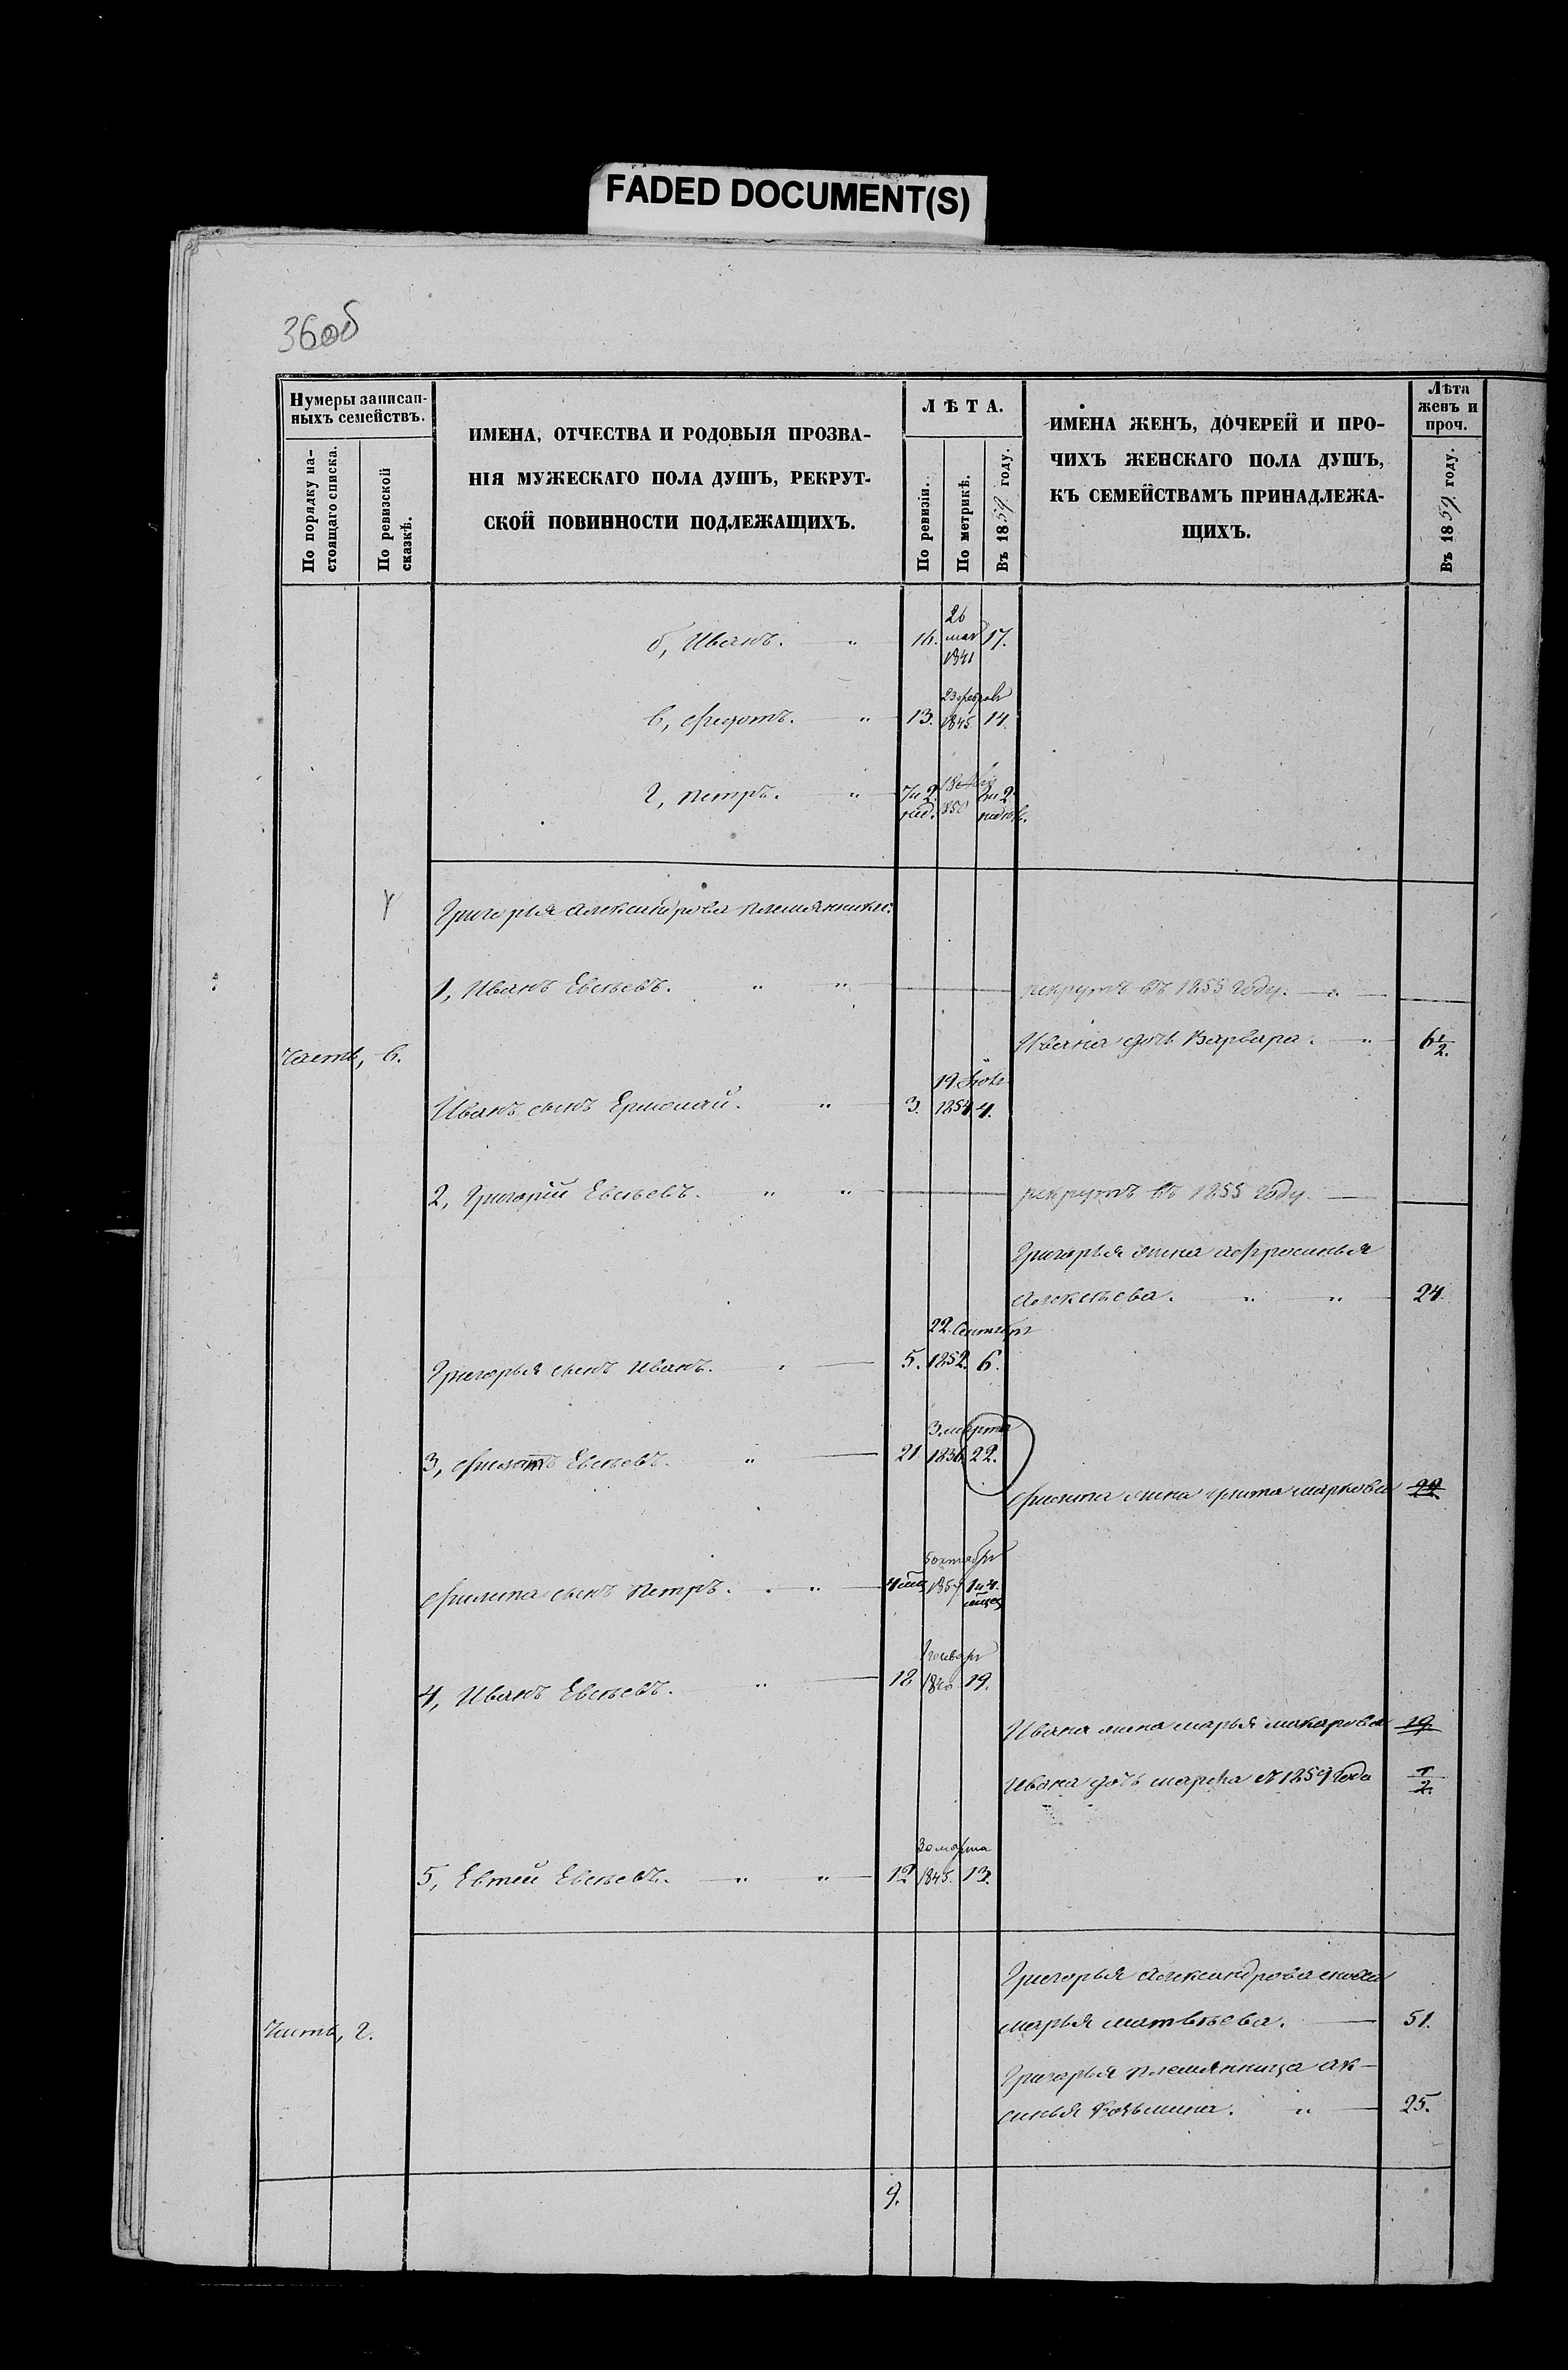 FADED DOCUMENT(S)
36об
Нумеры записан-
ныхъ семействъ.
По порядку на-
стоящаго списка.
По ревизской
сказкѣ.
ИМЕНА, ОТЧЕСТВА И РОДОВЫЯ ПРОЗВА-
НІЯ МУЖЕСКАГО ПОЛА ДУШЪ, РЕКРУТ-
СКОЙ ПОВИННОСТИ ПОДЛЕЖАЩИХЪ.
ЛѢТА.
По ревизіи.
По метрикѣ.
Въ 1859 году.
ИМЕНА ЖЕНЪ, ДОЧЕРЕЙ И ПРО-
ЧИХЪ ЖЕНСКАГО ПОЛА ДУШЪ,
КЪ СЕМЕЙСТВАМЪ ПРИНАДЛЕЖА-
ЩИХЪ.
Лѣта
женъ и
проч.
Въ 1859 году.
б, Иванъ. " 16. 26 мая 1841 17.
в, Федотъ. " 13. 23 февраля 1845 14.
г, Петръ. " 7 и 2. 1850 и 2.
Григорья Александрова племянники:
1, Иванъ Евсѣевъ. " " рекрутъ въ 1855 году. "
Ивана дочь Варвара. " 6 1/2.
Часть, б.
Иванъ сынъ Ермолай. " 3. 19 1854 4.
2, Григорій Евсѣевъ. " " рекрутъ въ 1855 году.
Григорья жена Афросинья
Алексѣева. " " 24.
Григорья сынъ Иванъ. " 5. 22. Сентября 1852. 6.
3, Филипъ Евсѣевъ. " 21 3. марта 1836 22.
Филипа жена маркова 22.
Филипа сынъ Петръ. " 4 5 октября 1857 1 и 4.
4, Иванъ Евсѣевъ. " 18 Генваря 1840 19.
Ивана жена марья макарова 19
Ивана дочь марѳа 1859 года 1/2.
5, Евтей Евсѣевъ. " " 12 30 марта 1845. 13.
Григорья Александрова сноха
марья матвѣева. 51.
Часть, г.
Григорья племянница Ак-
синья Козьмина. " 25.
9.